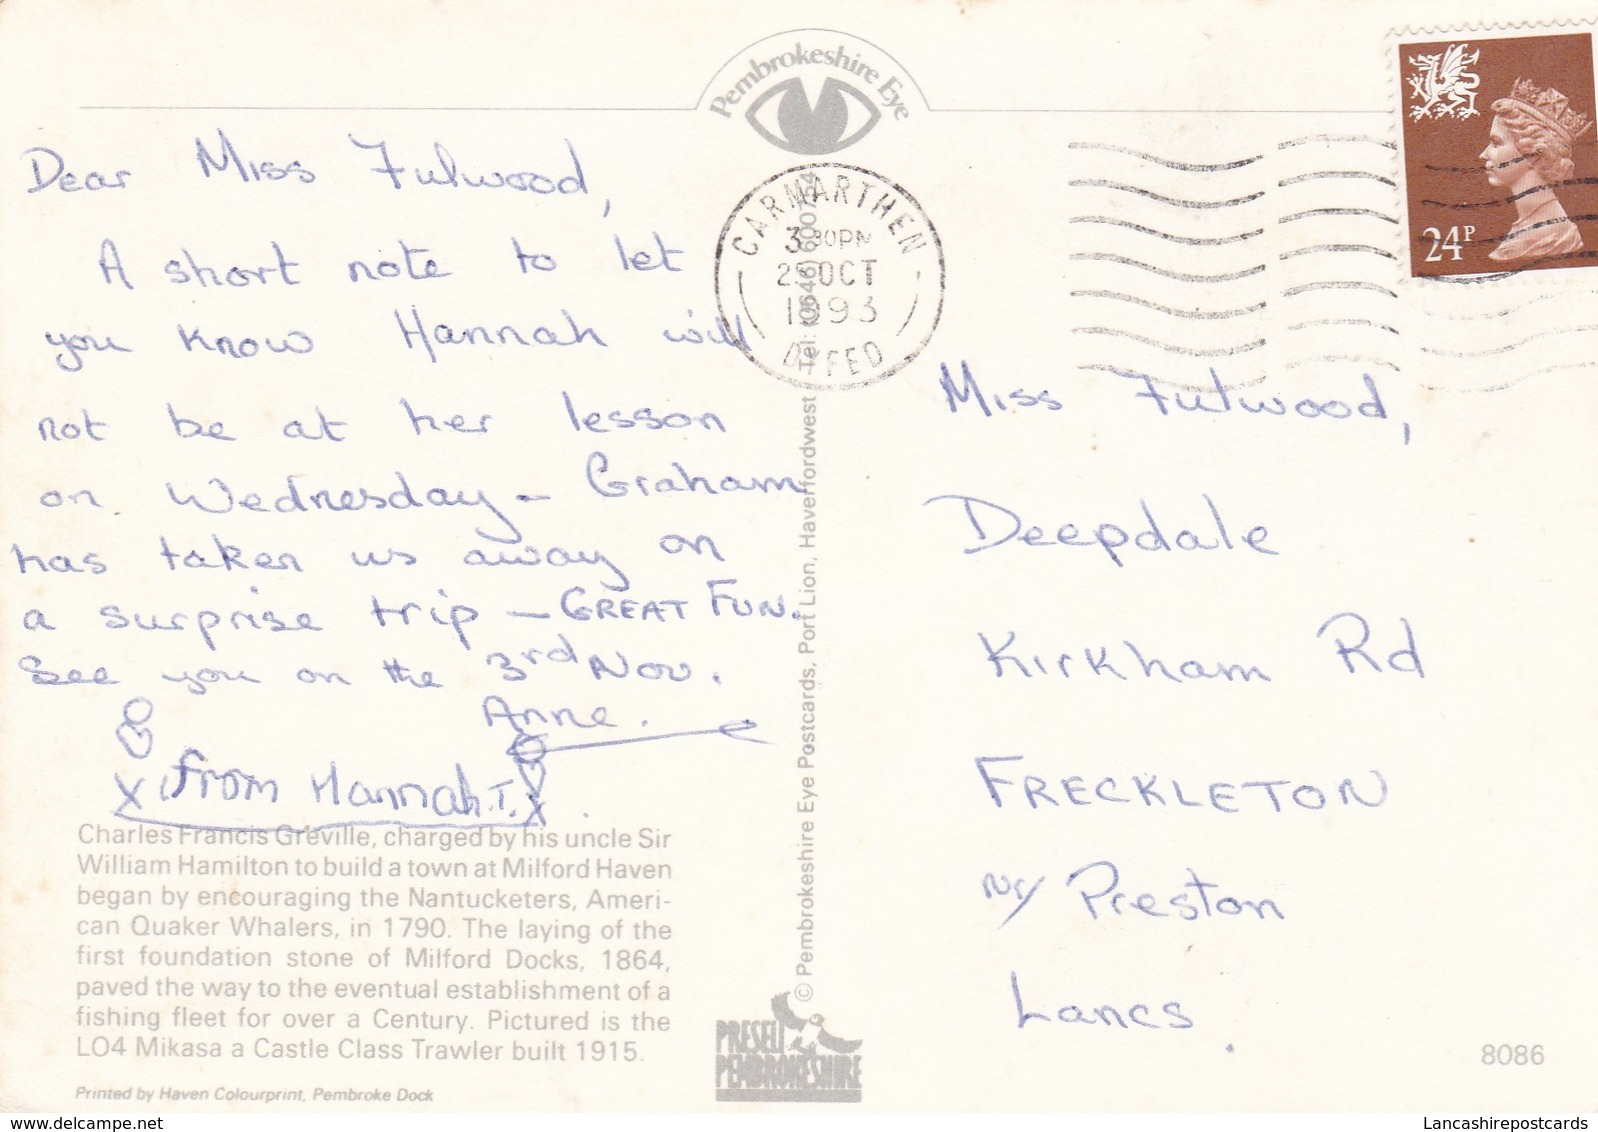 Pembrokeshire Eye
Dear Miss Fulwood,
A short note to let
you know Hannah will
not be at her lesson
on Wednesday - Graham
has taken us away on
a surprise trip - GREAT FUN.
See you on the 3rd Nov.
Anne.
x from Hannah.T. x
Charles Francis Greville, charged by his uncle Sir
William Hamilton to build a town at Milford Haven
began by encouraging the Nantucketers, Ameri-
can Quaker Whalers, in 1790. The laying of the
first foundation stone of Milford Docks, 1864,
paved the way to the eventual establishment of a
fishing fleet for over a Century. Pictured is the
LO4 Mikasa a Castle Class Trawler built 1915.
Printed by Haven Colourprint, Pembroke Dock
© Pembrokeshire Eye Postcards, Port Lion, Haverfordwest Tel:
PRESELI
PEMBROKESHIRE
CARMARTHEN
3.30PM
OCT
1993
DYFED
24P
Miss Fulwood,
Deepdale
Kirkham Rd
FRECKLETON
Nr/ Preston
Lancs.
8086
www.delcampe.net
Lancashirepostcards